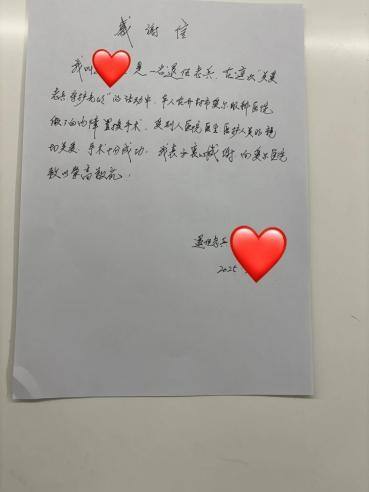 感谢信
我叫 是一名退伍老兵，在这次“关爱
老兵 守护光明”的活动中，本人在开封市爱尔眼科医院
做了白内障置换手术，受到人医院医生医护人员的亲
切关爱，手术十分成功，我表示衷心感谢，向爱尔医院
致以崇高敬礼！
退伍老兵
2025